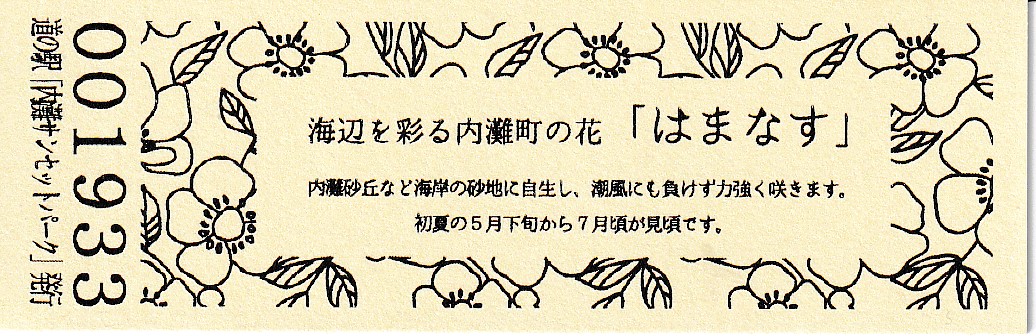 海辺を彩る内灘町の花「はまなす」
内灘砂丘など海岸の砂地に自生し、潮風にも負けず力強く咲きます。
初夏の5月下旬から7月頃が見頃です。
001933
道の駅「内灘サンセットパーク」発行